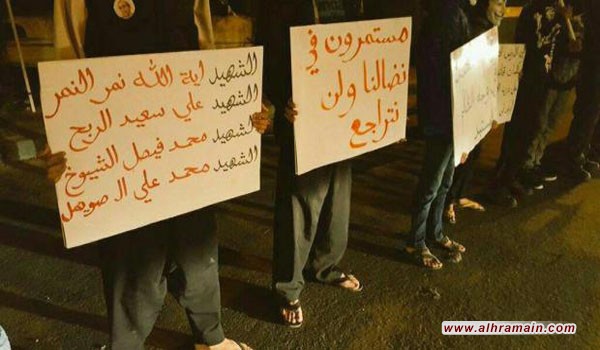 الشهيد اية الله نمر النمر
الشهيد علي سعيد الربح
الشهيد محمد فيصل الشيوخ
الشهيد محمد علي ال صويمل
مستمرون في
نضالنا ولن
نتراجع
www.alhramain.com